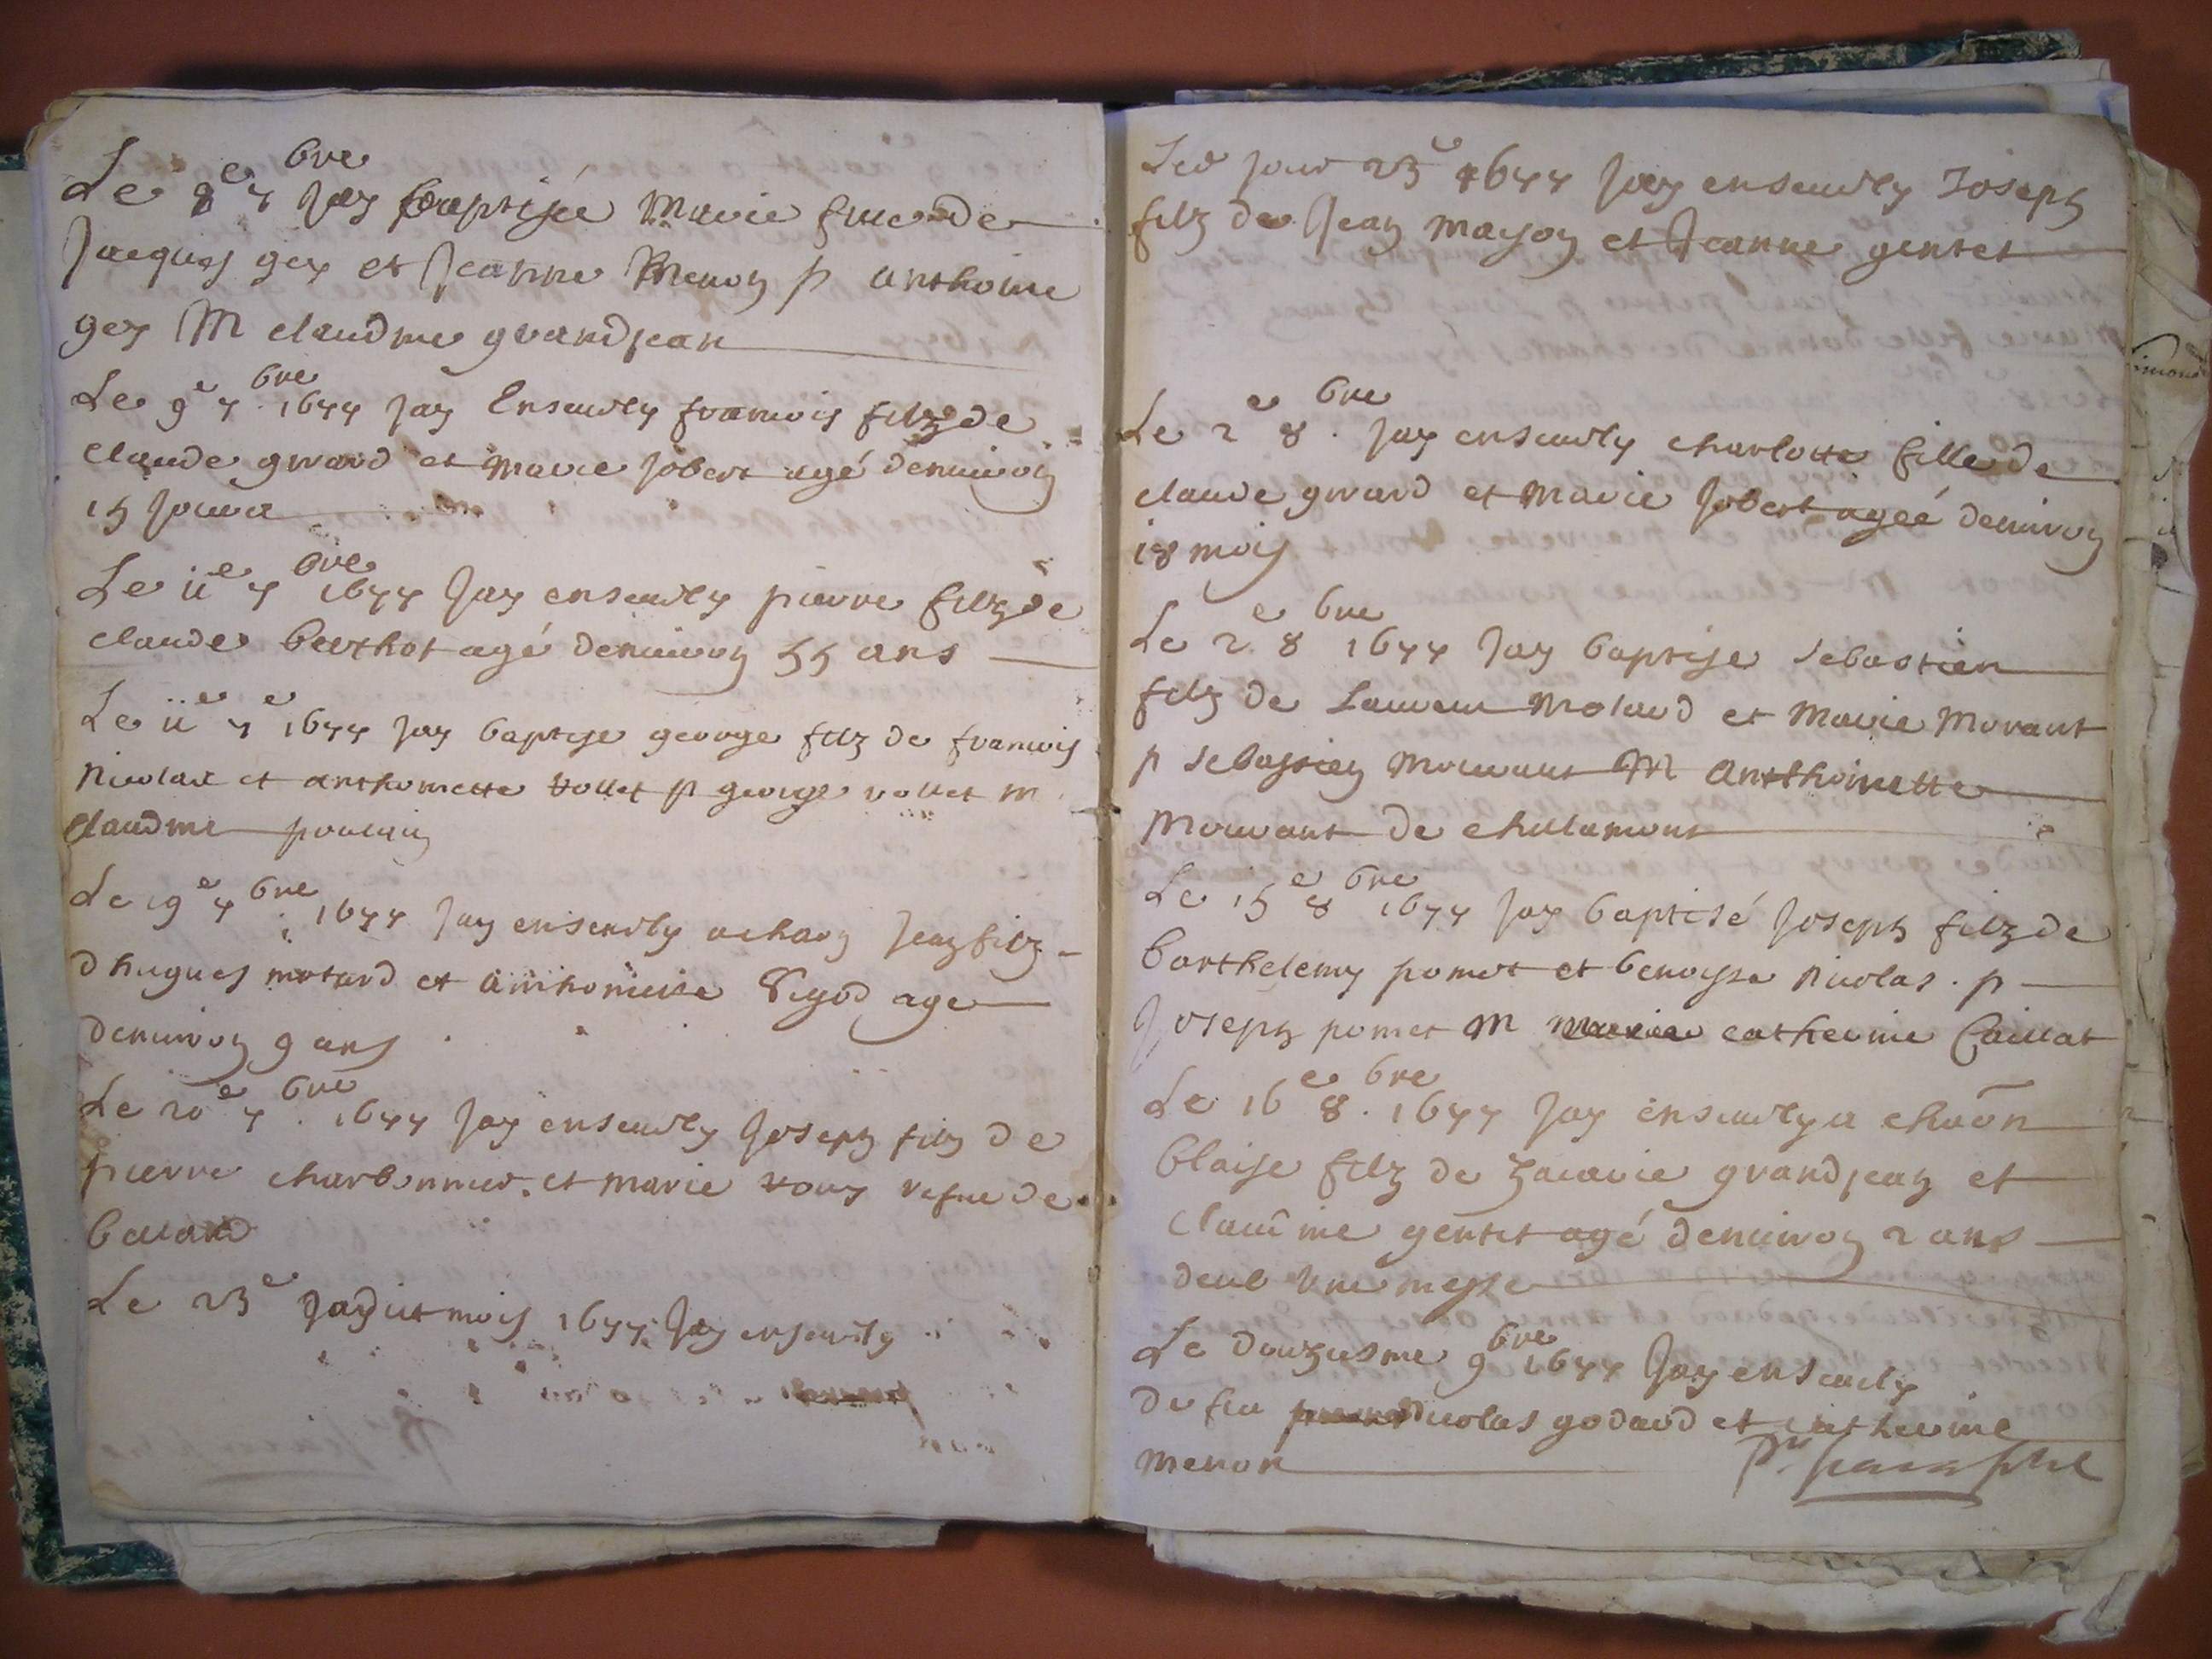 Le 8e 7bre Jay baptisee Marie fille de
Jacques gex et Jeanne Menon p anthoine
gex M claudine grandjean
Le 9e 7bre 1677 Jay Ensevely francois filz de
claude girard et marie Jobert agé denviron
15 Jours
Le iie 7bre 1677 Jay ensevely pierre filz de
claude berthot agé denviron 55 ans
Le iie 7e 1677 Jay baptise george filz de francois
Nicolas et anthoinette vollet p george vollet m
claudine poulain
Le 19e 7bre 1677 Jay ensevely a chaon Jean filz
d hugues motard et anthoinette age
denviron 9 ans
Le 20e 7bre 1677 Jay ensevely Joseph filz de
pierre charbonnier et marie de
Le 23e Jour dudit mois 1677 Jay ensevely
Led Jour 23e 1677 Jay ensevely Joseph
filz de Jean mayon et Jeanne gentet
Le 2e 8bre Jay ensevely charlotte fille de
claude girard et marie Jobert agéé denviron
18 mois
Le 2e 8bre 1677 Jay baptise sebastien
filz de Laurens molard et marie morant
p sebastien mourant M anthoinette
mourant de chalamont
Le 15e 8bre 1677 Jay baptisé Joseph filz de
barthelemy pomet et benoyste Nicolas . p
Joseph pomet M marie catherine Caillat
Le 16e 8bre 1677 Jay ensevely a chaōn
blaise filz de Zacarie grandjean et
Claudine gentet agé denviron 2 ans
deub une messe
Le douziesme 9bre 1677 Jay ensevely
de feu nicolas godard et catherine
menon